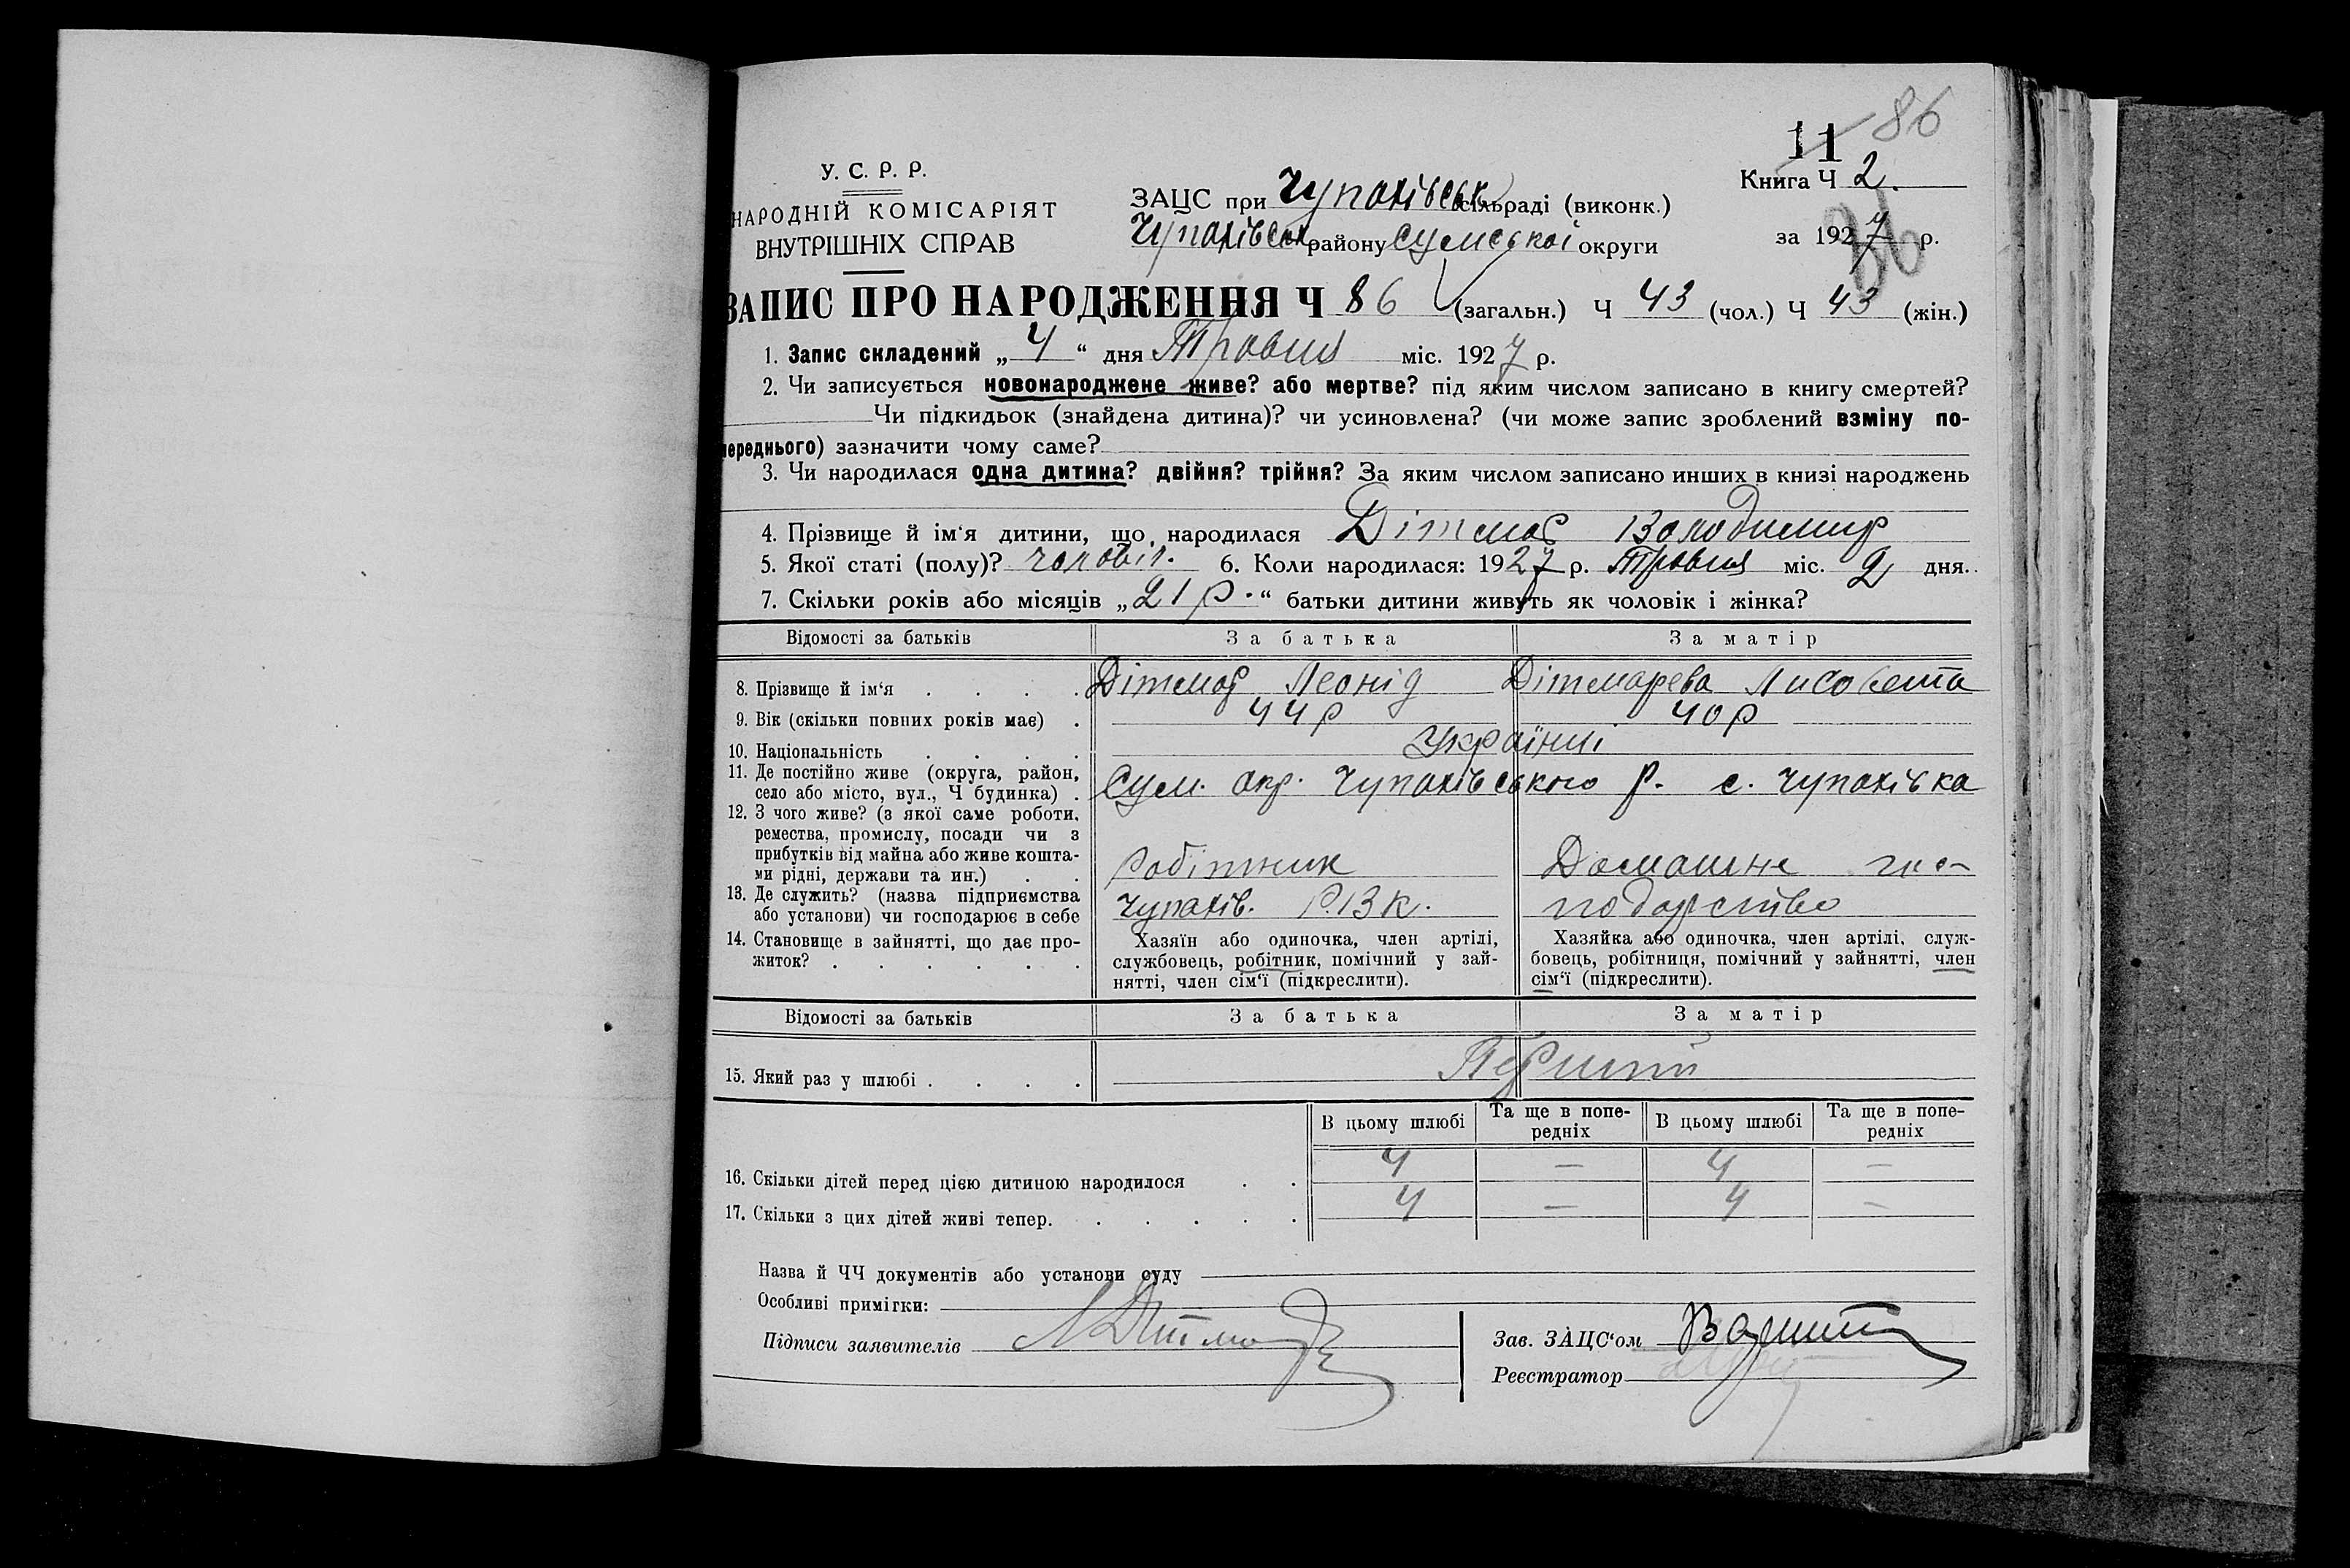 86
11
У. С. Р. Р.
НАРОДНІЙ КОМІСАРІЯТ
ВНУТРІШНІХ СПРАВ
ЗАЦС при Чупахівськ сільраді (виконк.)
Чупахівськ району Сумської округи
Книга Ч 2.
за 1927 р.
86
ЗАПИС ПРО НАРОДЖЕННЯ Ч 86 (загальн.) Ч 43 (чол.) Ч 43 (жін.)
1. Запис складений „ 4 “ дня Травня міс. 1927 р.
2. Чи записується новонароджене живе? або мертве? під яким числом записано в книгу смертей?
Чи підкидьок (знайдена дитина)? чи усиновлена? (чи може запис зроблений взміну по-
переднього) зазначити чому саме?
3. Чи народилася одна дитина? двійня? трійня? За яким числом записано инших в книзі народжень
4. Прізвище й ім‘я дитини, що народилася Дітмар Володимир
5. Якої статі (полу)? чоловіч. 6. Коли народилася: 1927 р. Травня міс. 2 дня.
7. Скільки років або місяців „ 21 р. “ батьки дитини живуть як чоловік і жінка?
Відомості за батьків За батька За матір
8. Прізвище й ім‘я Дітмар Леонід Дітмарева Лисовета
9. Вік (скільки повних років має) 44 р 40 р
10. Національність Українці
11. Де постійно живе (округа, район,
село або місто, вул., Ч будинка) Сум. окр. Чупахівського р. с. Чупахівка
12. З чого живе? (з якої саме роботи,
ремества, промислу, посади чи з
прибутків від майна або живе кошта-
ми рідні, держави та ин.) Робітник Домашнє гос-
13. Де служить? (назва підприємства
або установи) чи господарює в себе Чупахів. Р.В.К. подарство
14. Становище в зайнятті, що дає про-
житок?
Хазяїн або одиночка, член артілі,
службовець, робітник, помічний у зай-
нятті, член сім‘ї (підкреслити).
Хазяйка або одиночка, член артілі, служ-
бовець, робітниця, помічний у зайнятті, член
сім‘ї (підкреслити).
Відомості за батьків За батька За матір
15. Який раз у шлюбі Перший
В цьому шлюбі Та ще в попе-
редніх В цьому шлюбі Та ще в попе-
редніх
16. Скільки дітей перед цією дитиною народилося 4 — 4 —
17. Скільки з цих дітей живі тепер. 4 — 4 —
Назва й ЧЧ документів або установи суду
Особливі примітки:
Підписи заявителів Л Дітмар
Зав. ЗАЦС‘ом
Реєстратор